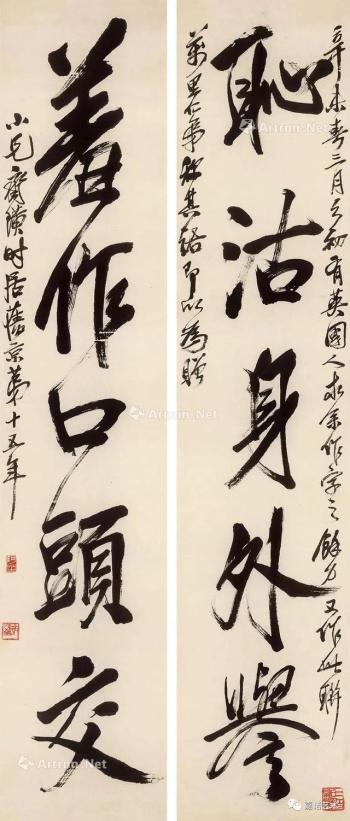 辛未春三月之初有英國人求余作字之餘力又作此聯
恥沽身外譽
萬里仁弟其語即以為贈
羞作口頭交
小兄齊璜時居舊京第十五年
Artron.Net
Artron.Net
Artron.Net
Artron.Net